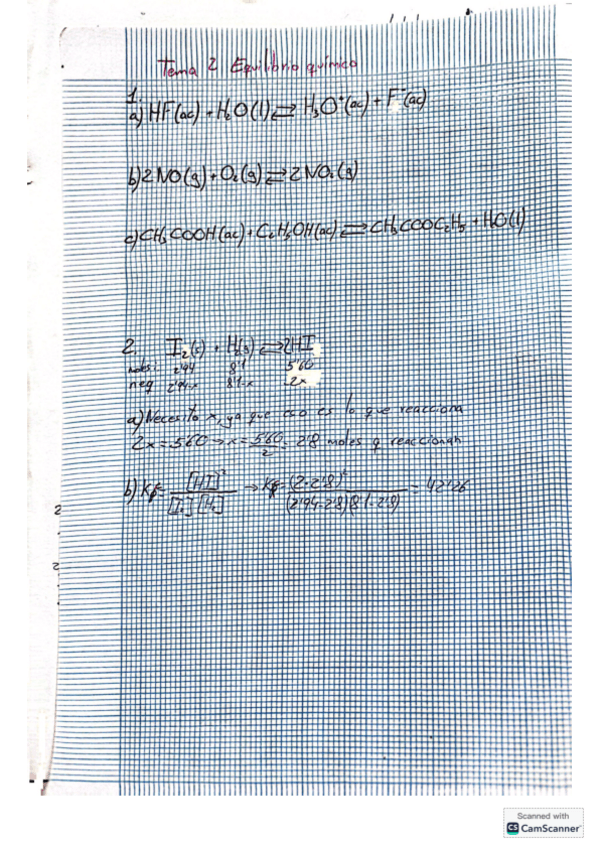 Tema 2 Equilibrio químico
1.
a) HF(ac) + H₂O(l) ⇌ H₃O⁺(ac) + F⁻(ac)
b) 2NO(g) + O₂(g) ⇌ 2NO₂(g)
c) CH₃COOH(ac) + C₂H₅OH(ac) ⇌ CH₃COOC₂H₅ + H₂O(l)
2. I₂(g) + H₂(g) ⇌ 2HI
moles: 2'94 8'1 5'60
neq 2'94-x 8'1-x 2x
a) Necesito x, ya que eso es lo que reacciona
2x = 5'60 → x = 5'60/2 = 2'8 moles q reaccionan
b) Kc = [HI]²/[I₂][H₂] → Kc = (2·2'8)²/(2'94-2'8)(8'1-2'8) = 42'26
2
2
Scanned with
CS CamScanner